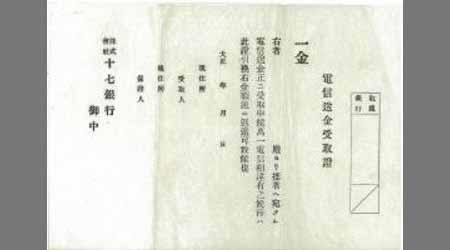 取扱銀行
電信送金受取證
一金
右者　殿ヨリ拙者ヘ宛タル
電信送金正ニ受取申候萬一電信相違有之候節ハ
此證引換右金額返
大正　年　月　日
現住所
受取人
現住所
保證人
株式會社十七銀行
御中